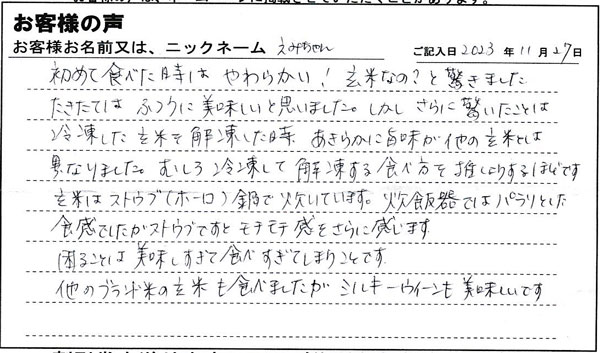 お客様の声
お客様お名前又は、ニックネーム えみちゃん ご記入日 2023 年 11 月 27 日
初めて食べた時は やわらかい! 玄米なの?と驚きました
たきたては ふつうに美味しいと思いました。しかし さらに驚いたことは
冷凍した玄米を解凍した時 あきらかに旨味が他の玄米とは
異なりました。むしろ冷凍して解凍する食べ方を推しりするほどです
玄米はストウブ(ホーロー)鍋で炊いています。炊飯器ではパラリとした
食感でしたがストウブですと モチモチ感をさらに感じます
困ることは美味しすぎて食べすぎてしまうことです
他のブランド米の玄米も食べましたが シルキークイーンも美味しいです